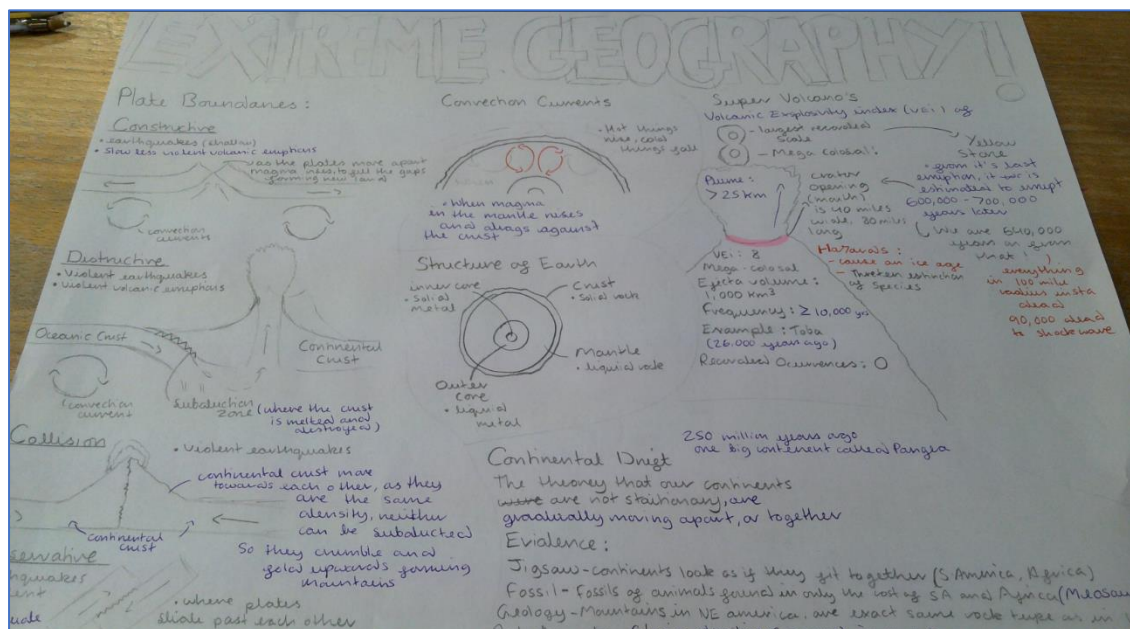 EXTREME GEOGRAPHY!
Plate Boundaries:
Constructive
• earthquakes (shallow)
• Slow less violent volcanic eruptions
as the plates move apart
magma rises, to fill the gaps
forming new land
convection
currents
Distructive
• Violent earthquakes
• violent volcanic eruptions
Oceanic Crust
Continental
Crust
convection
current
Subduction
zone (where the crust
is melted and
destroyed)
Collision
• violent earthquakes
continental crust move
towards each other, as they
are the same
density, neither
can be subducted
So they crumble and
fold upwards forming
mountains
continental
crust
servative
hquakes
ent
• where plates
slide past each other
Convection Currents
• Hot things
rise, cold
things fall
• When magma
in the mantle rises
and drags against
the crust
Structure of Earth
inner core
• Solid
metal
Crust
• Solid rock
Mantle
• liquid rock
Outer
core
• liquid
metal
Super Volcano's
Volcanic Explosivity index (vei) of
8
- largest recorded
scale
- Mega colosal!
Plume:
>25km
crater
opening
(mouth)
is 40 miles
wide, 20 miles
long
Yellow
Stone
• from it's last
eruption, it is
estimated to erupt
600,000 - 700,000
years later
We are 640,000
years on from
that!
VEI: 8
Mega-colosal
Ejecta volume:
1,000 km³
Frequency: ≥ 10,000 yrs
Example: Toba
(26,000 years ago)
Recorded Ocurrences: 0
Hazards:
- cause an ice age
- Threaten extinction
of species
everything
in 100 mile
radius insta
dead
90,000 dead
to shockwave
250 million years ago
one big contenent called Pangea
Continental Drift
The theorey that our continents
were are not staitionary, are
gradually moving apart, or together
Evidence:
Jigsaw - continents look as if they fit together (S.America, Africa)
Fossil - Fossils of animals found in only the cost of SA and Africa (Mesosau
Geology - Mountains in NE america, are exact same rock type as in